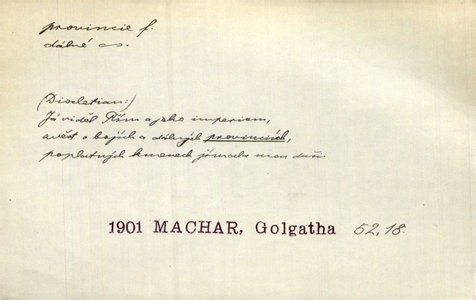 provincie f.
dálné cs.
(Diocletian:)
Já viděl Řím a jeho imperium,
zvěst o bojích a dálných provinciích,
poplatných kmenech jímala mou duši
1901 MACHAR, Golgatha 52,18.